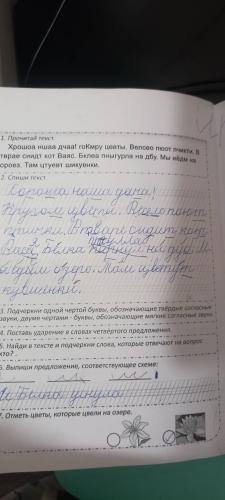 1. Прочитай текст.
Хрошоа ншаа дчаа! гоКмру цевты. Велосо пюот пчикти. В
тврае сиидт кот Ваяс. Бклеа пныгурла на дбу. Мы
Там цтуевт шикуенки.
2. Спиши текст.
Хороша наша дача!
Кругом цветы. Весело поют
птички. В траве сидит кот
Вася. Белка на дуб. М
озеро. Там цветут
кувшенки.
3. Подчеркни одной чертой буквы, обозначающие твёрдые согласные
звуки, двумя чертами - буквы, обозначающие мягкие согласные звуки.
4. Поставь ударение в словах четвёртого предложения.
5. Найди в тексте и подчеркни слова, которые отвечают на вопрос
кто?.
6. Выпиши предложение, соответствующее схеме:
Белка
7. Отметь цветы, которые цвели на озере.